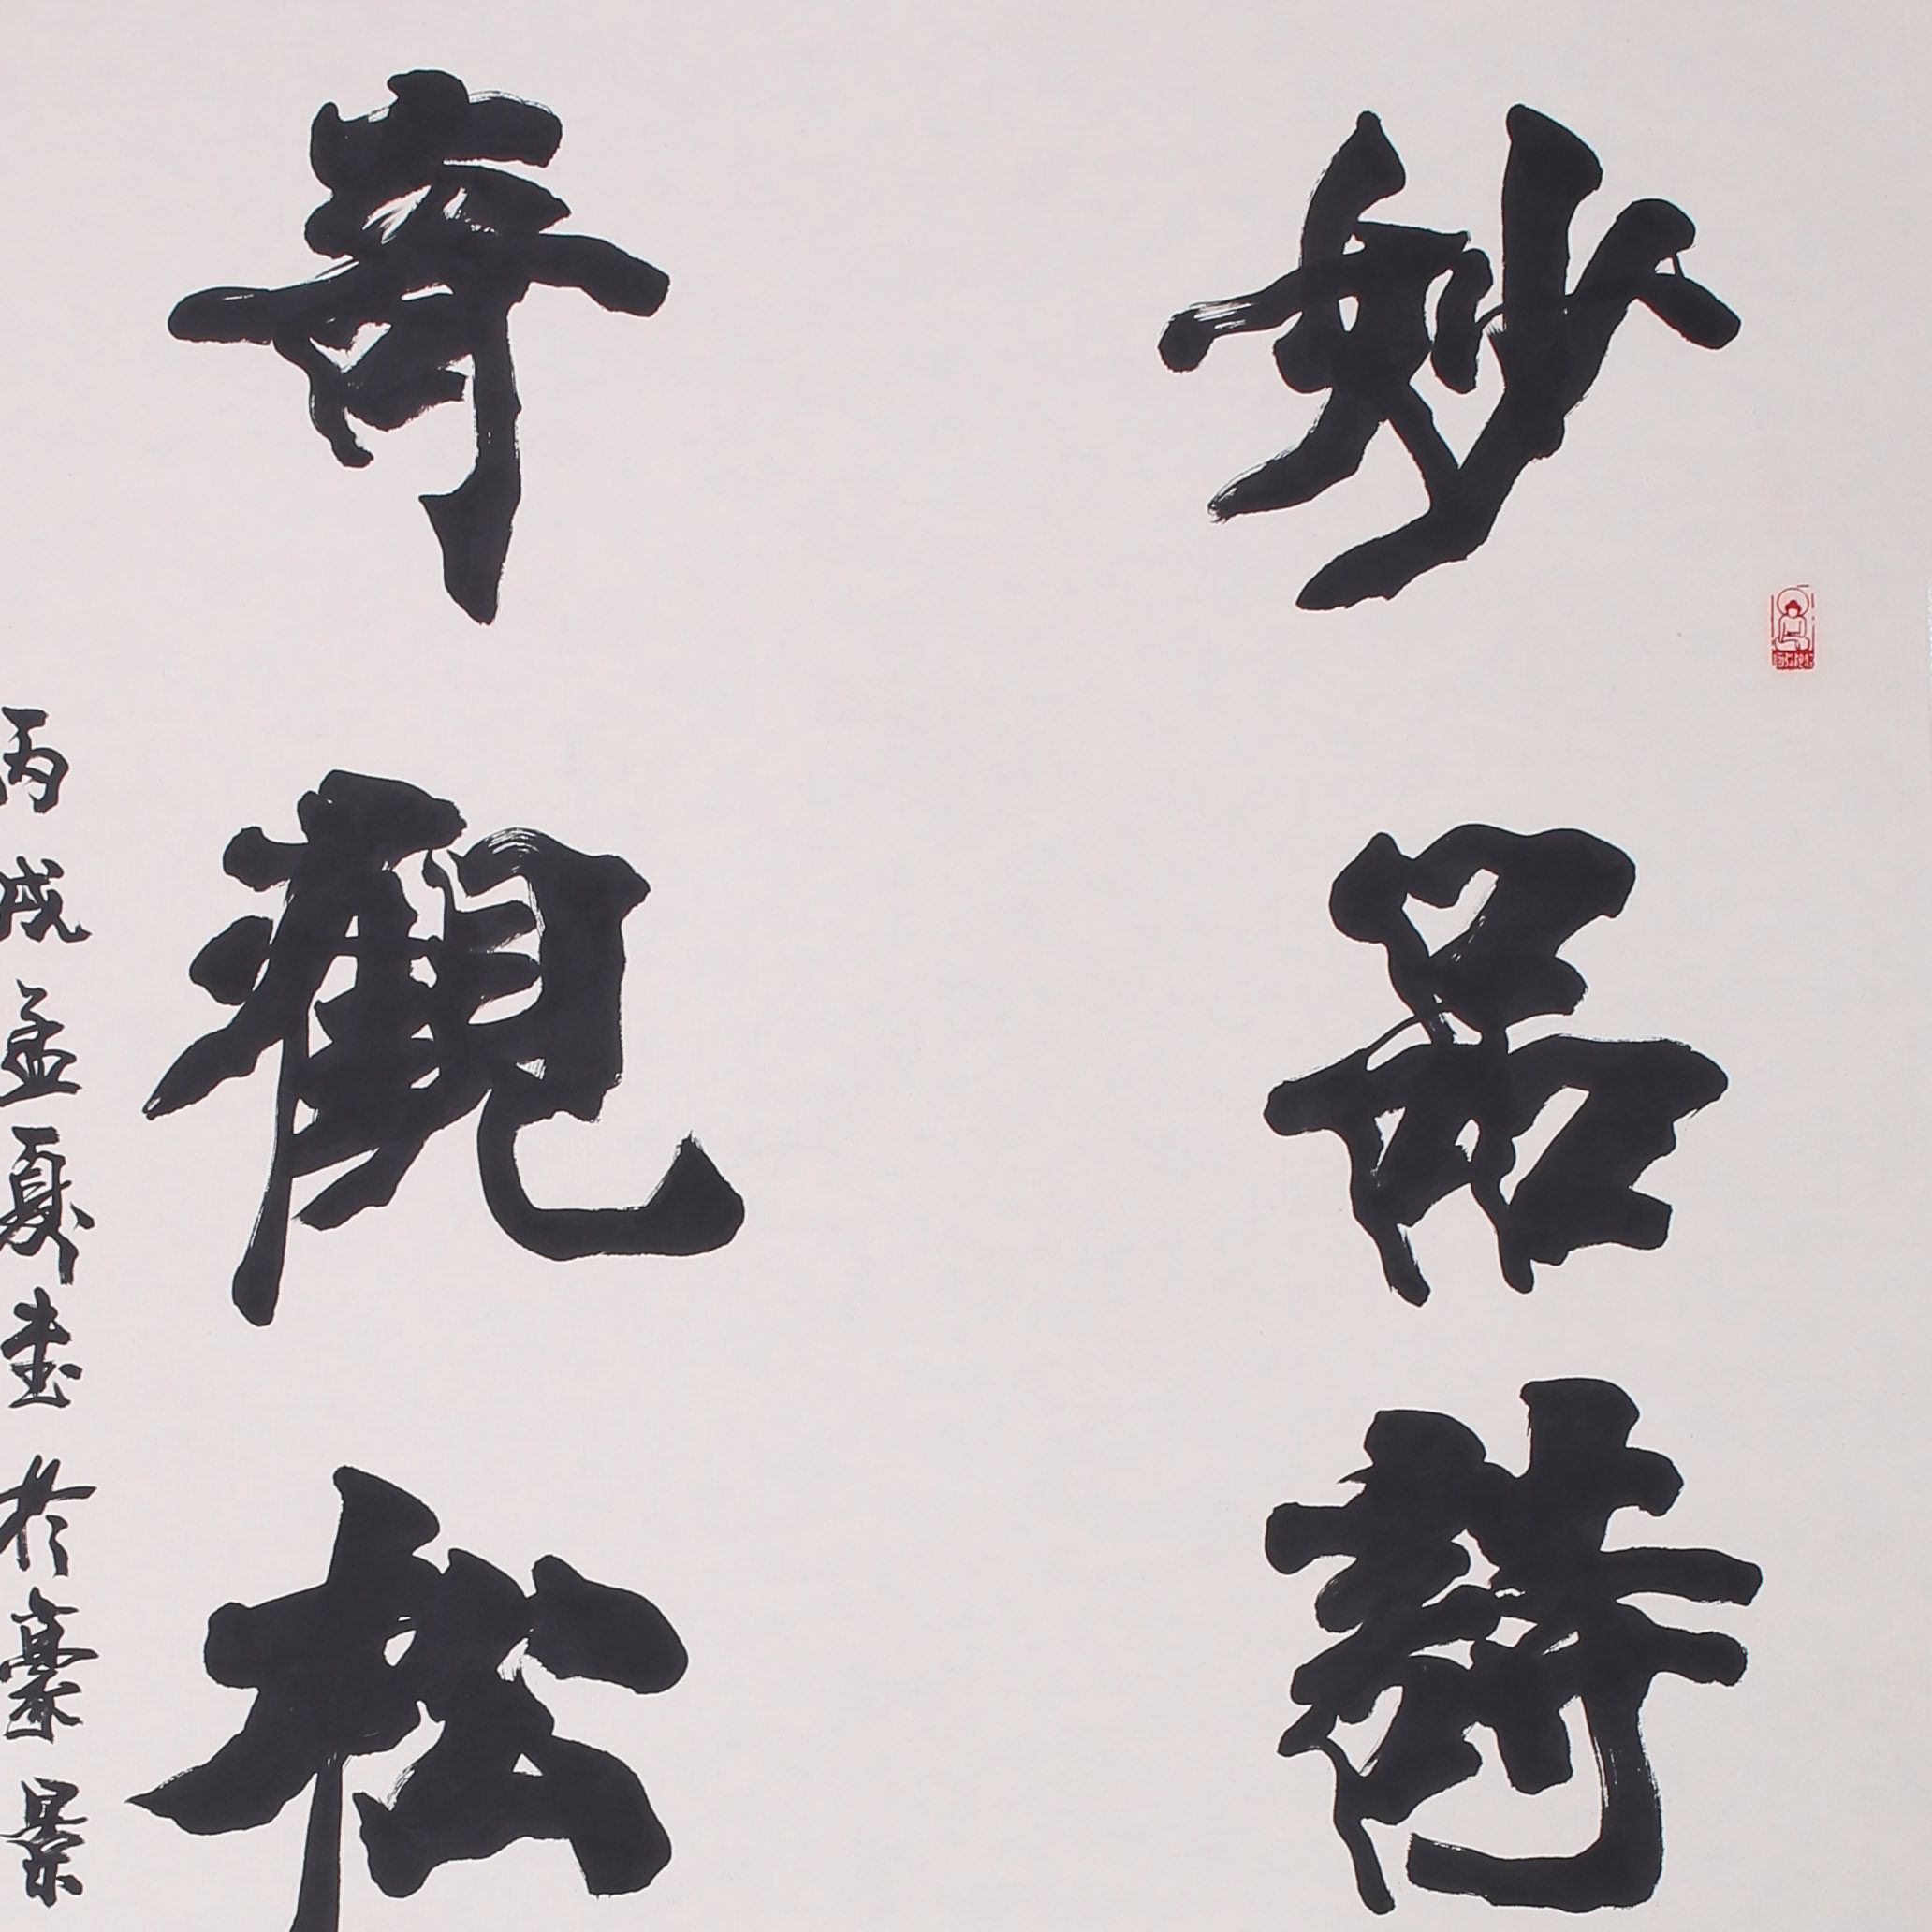 妙品詩
奇觀松
丙戌孟夏書於豪景